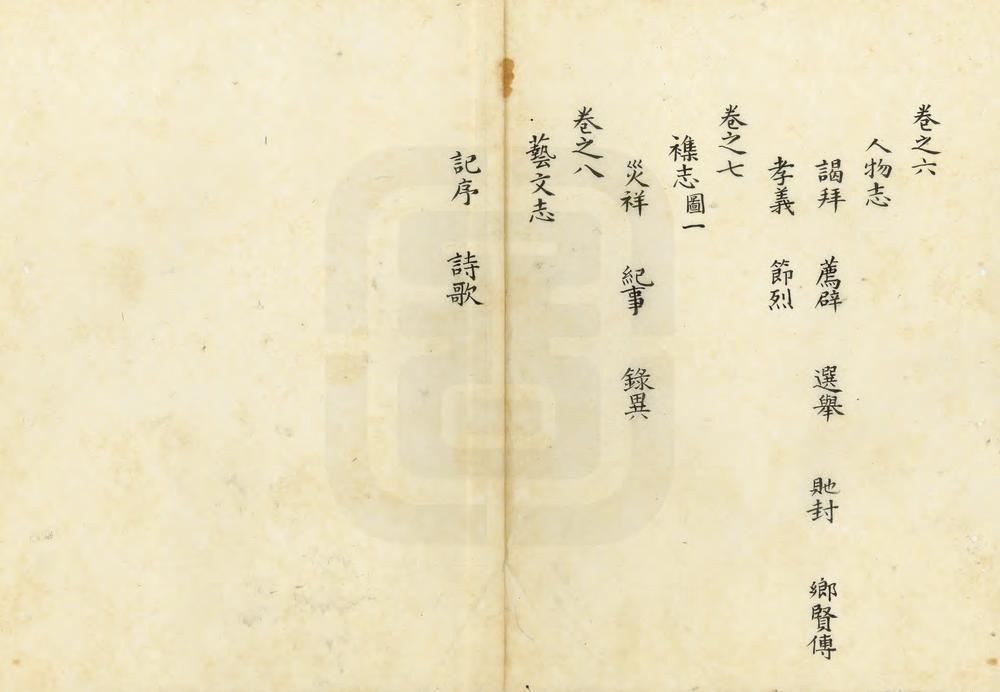 卷之六
人物志
謁拜 薦辟 選舉 貤封 鄉賢傳
孝義 節烈
卷之七
襍志圖一
災祥 紀事 錄異
卷之八
藝文志
記序 詩歌